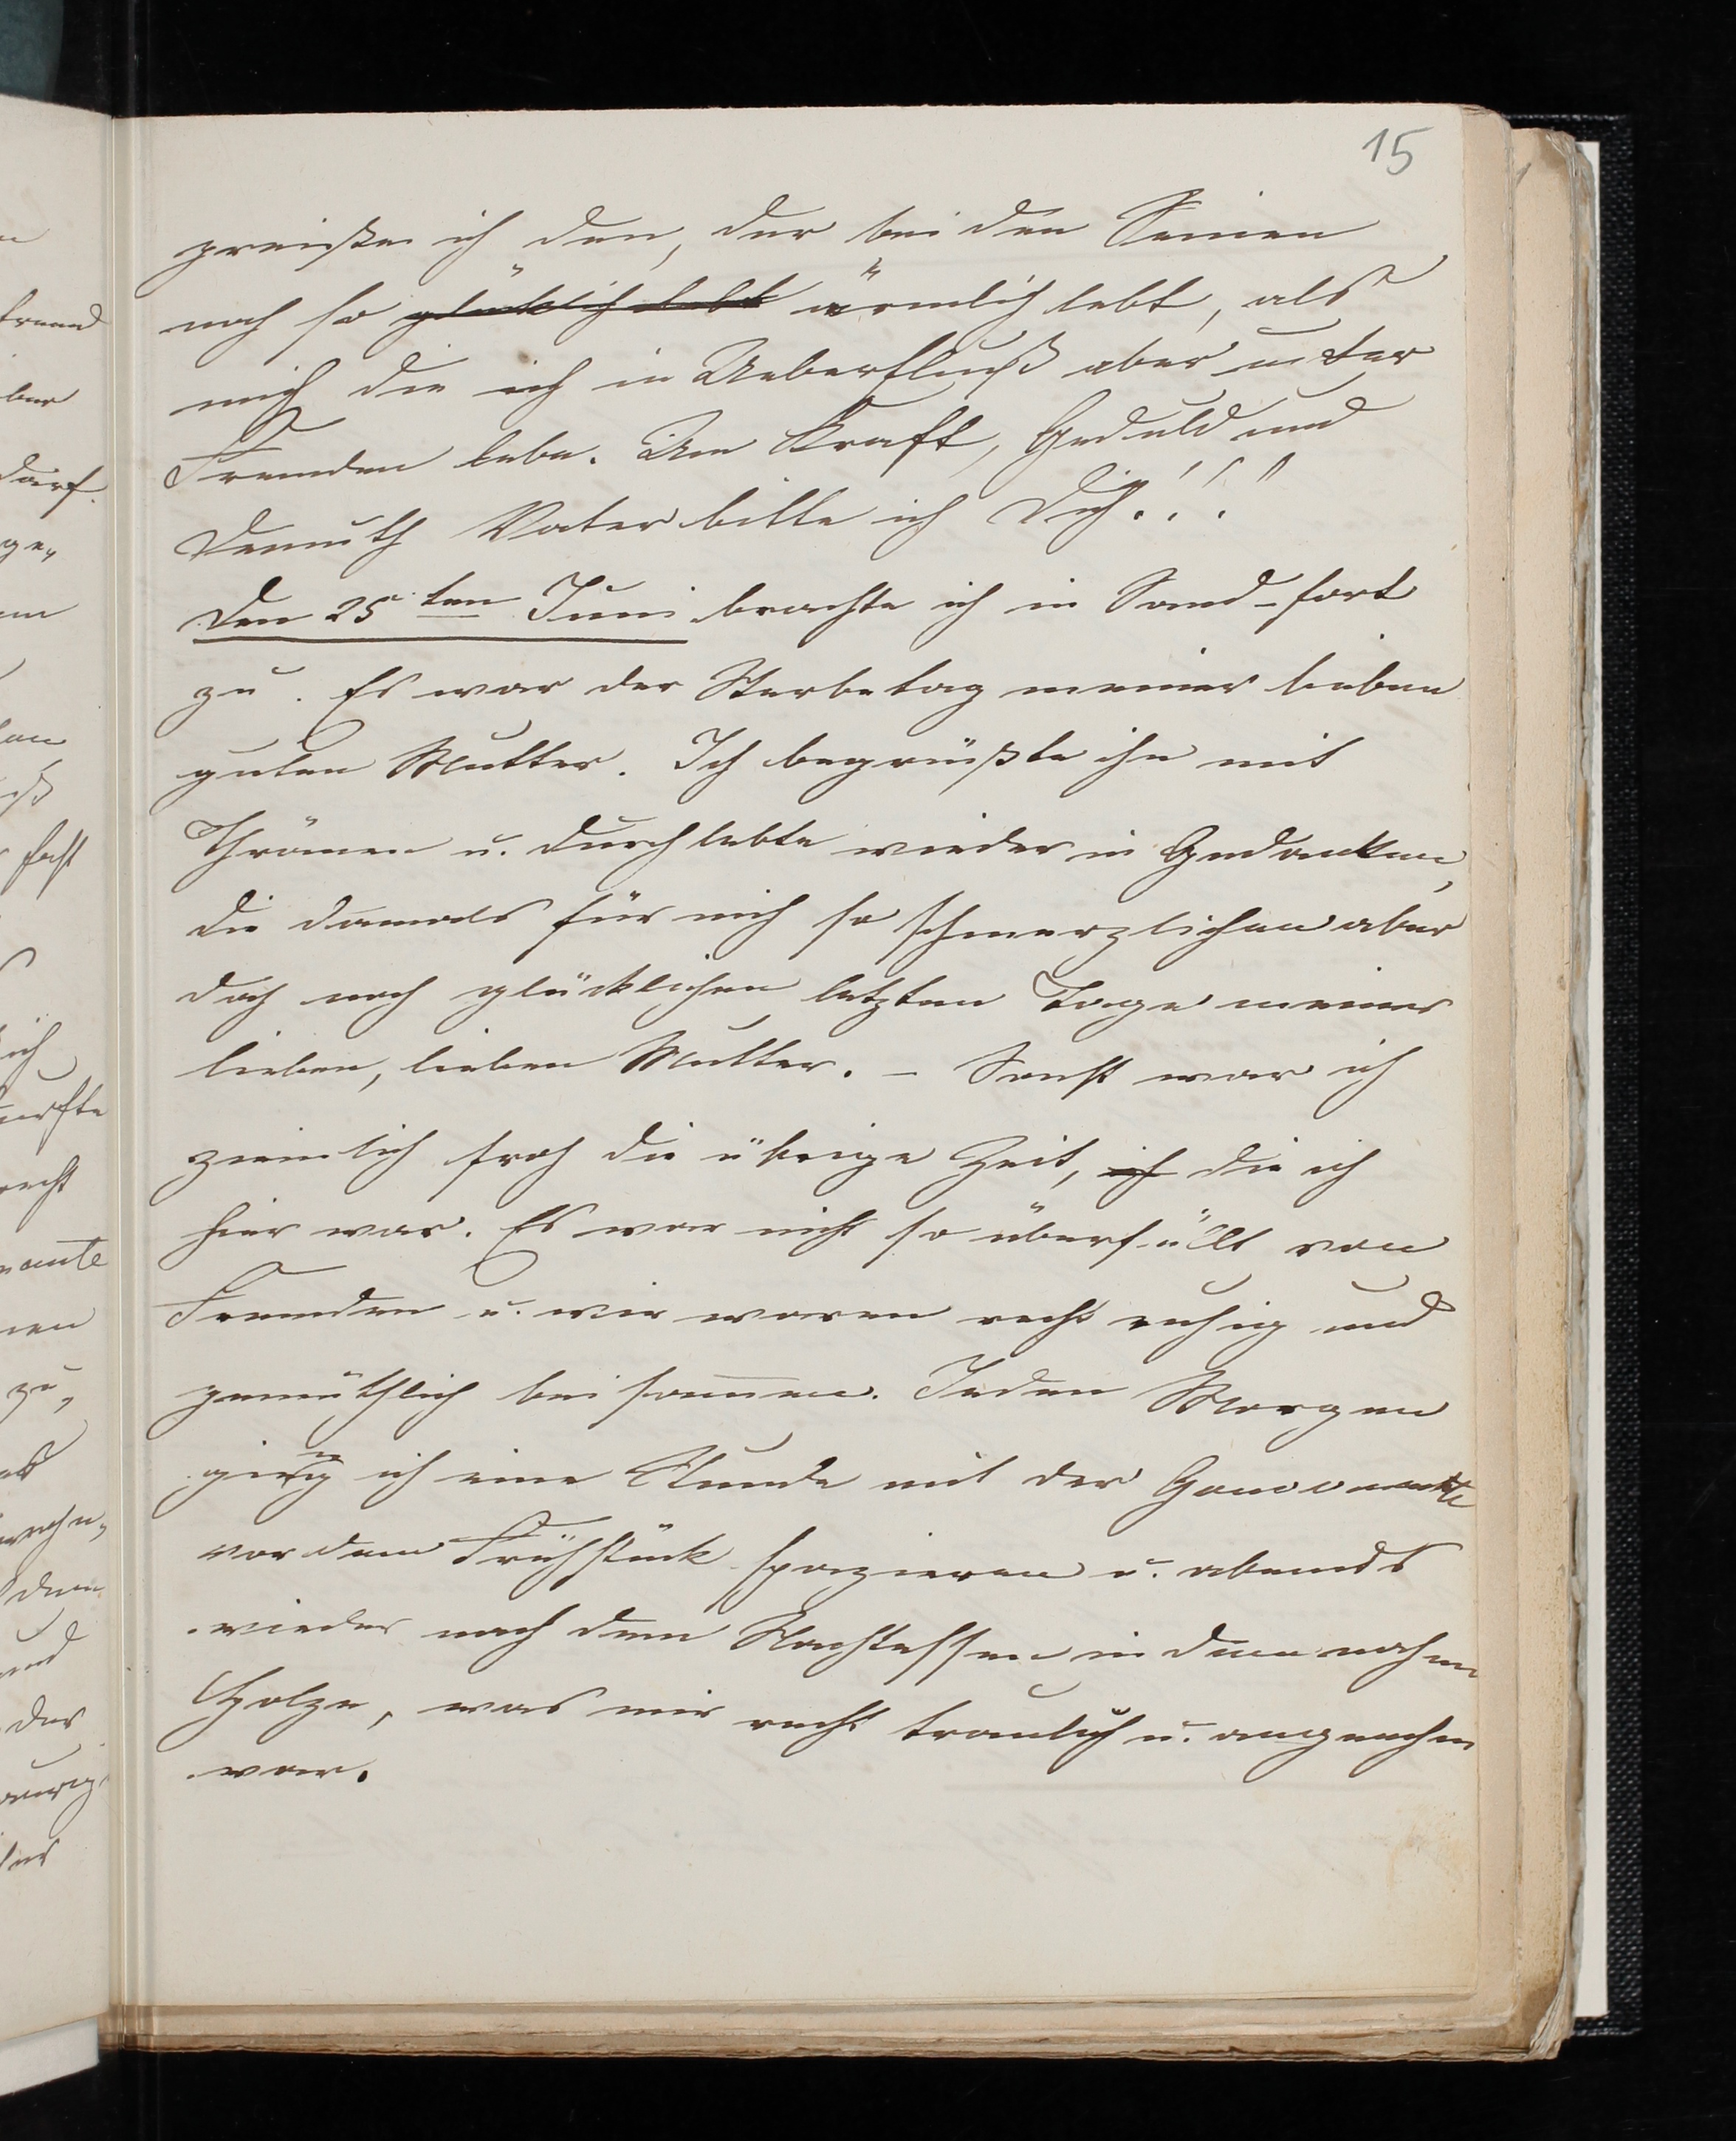 15
preiße ich den, der bei den Seinen
noch so glücklich lebt ärmlich lebt, als
mich die ich in Ueberfluß aber unter
Fremden lebe. Um Kraft, Geduld und
Demuth Vater bitte ich Dich!!!
Den 25ten Juni brachte ich in Sand-fort
zu. Es war der Sterbetag meiner lieben
guten Mutter. Ich begrüßte ihn mit
Thränen u. durchlebte wieder in Gedanken,
die damals für mich so schmerzlichen aber
doch noch glücklichen letzten Tage meiner
lieben, lieben Mutter. – Sonst war ich
ziemlich froh die übrige Zeit, ich die ich
hier war. Es war nicht so überfüllt von
Fremden u. wir waren recht ruhig und
gemüthlich beisammen. Jeden Morgen
ging ich eine Stunde mit der Gouvernante
vor dem Frühstück spazieren u. abends
wieder nach dem Nachtessen in dem nahen
Holze, was mir recht traulich u. angenehm
war.